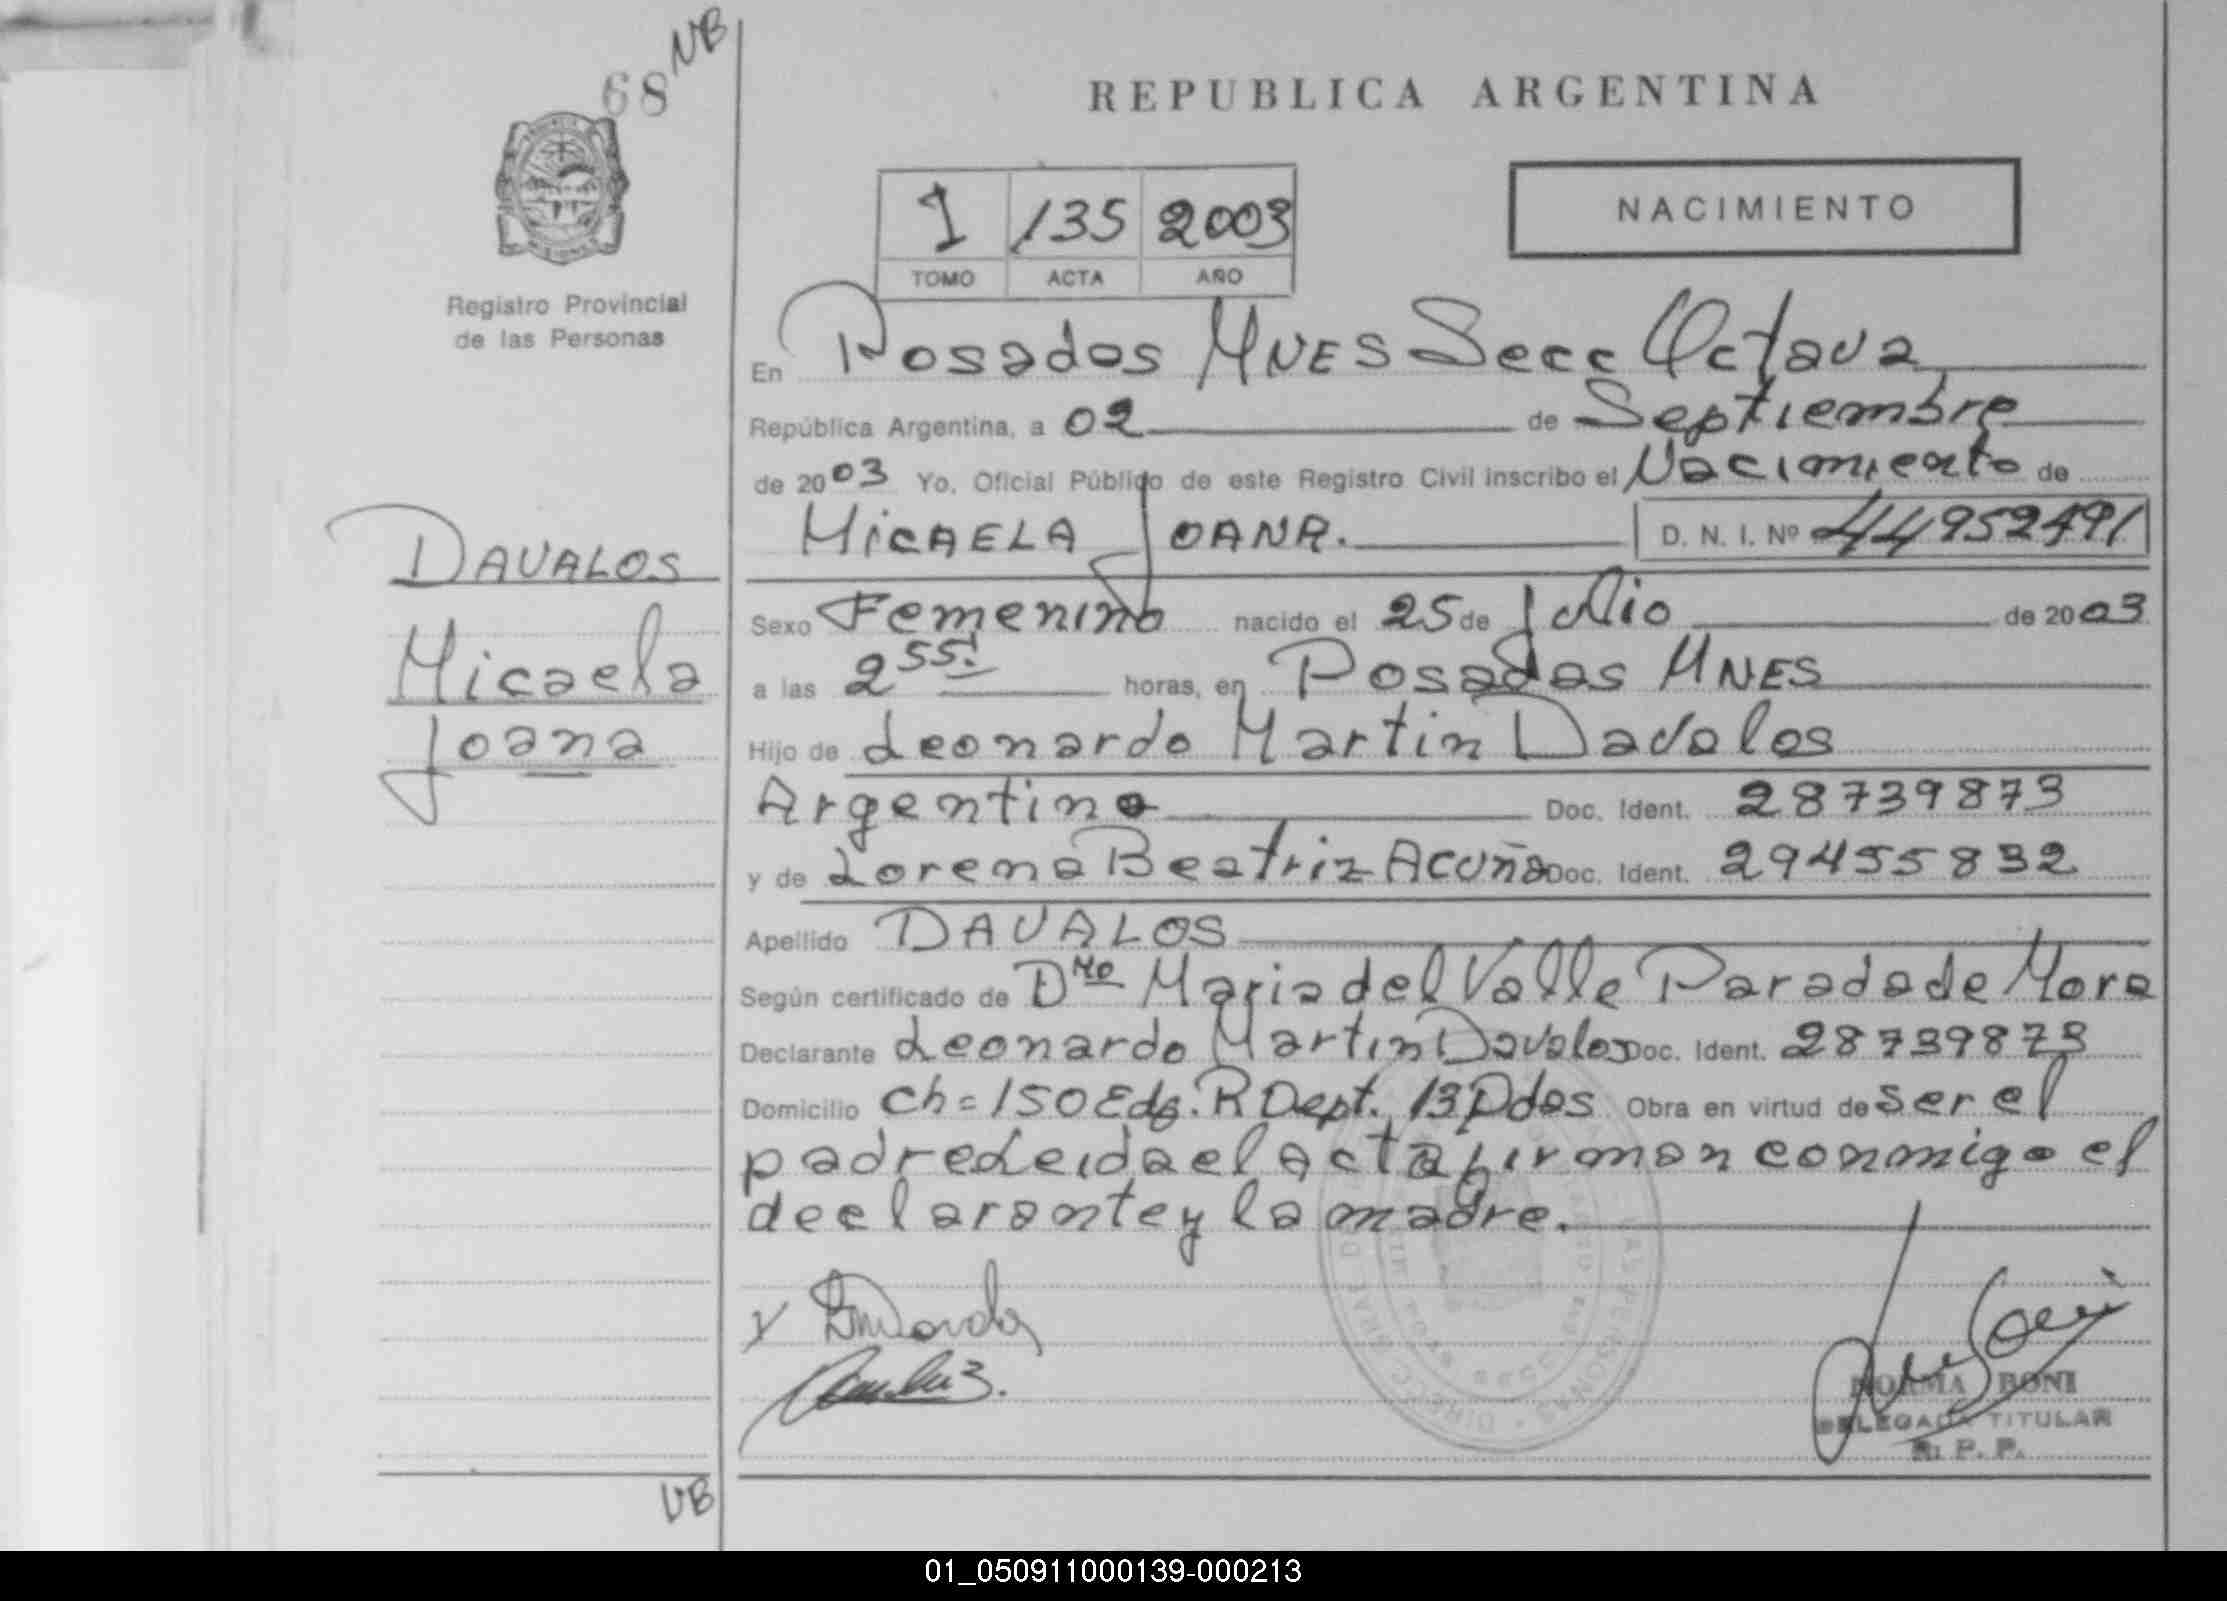 68 NB
REPUBLICA ARGENTINA
1 135 2003
TOMO ACTA AÑO
NACIMIENTO
Registro Provincial
de las Personas
En Posadas MNES Secc Octava
República Argentina, a 02 de Septiembre
de 2003 Yo, Oficial Público de este Registro Civil inscribo el Nacimiento de
MICAELA JOANA. D. N. I. Nº 44952491
DAVALOS
Micaela
Joana
Sexo Femenino nacido el 25 de Julio de 2003
a las 2 55' horas, en Posadas MNES
Hijo de Leonardo Martin Davalos
Argentino Doc. Ident. 28739873
y de Lorena Beatriz Acuña Doc. Ident. 29455832
Apellido DAVALOS
Según certificado de Maria del Valle Parada de Mora
Declarante Leonardo Martin Davalos Doc. Ident. 28739873
Domicilio Ch=150 Edf. R Dept. 13 Pdas Obra en virtud de ser el
padre Leida el acta firman conmigo el
declarante y la madre.
NORMA BONI
DELEGADA TITULAR
R. P. P.
01_050911000139-000213